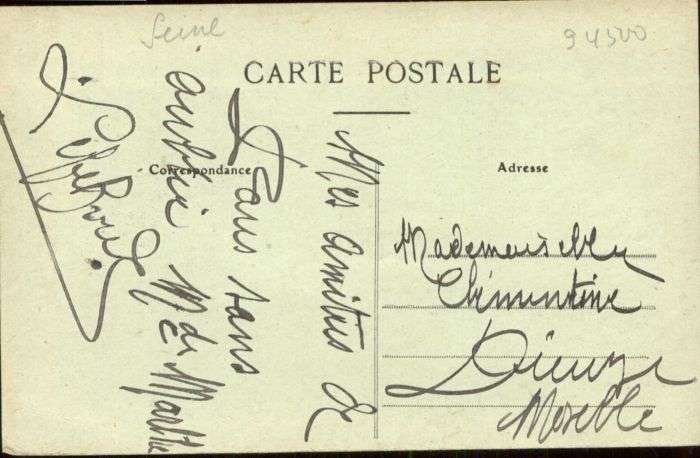 Seine
94500
CARTE POSTALE
Correspondance
Adresse
Mes amitiés de
Paris sans
oublier Mde Marthe
Mademoiselle
Clémentine
Dieuze
Moselle